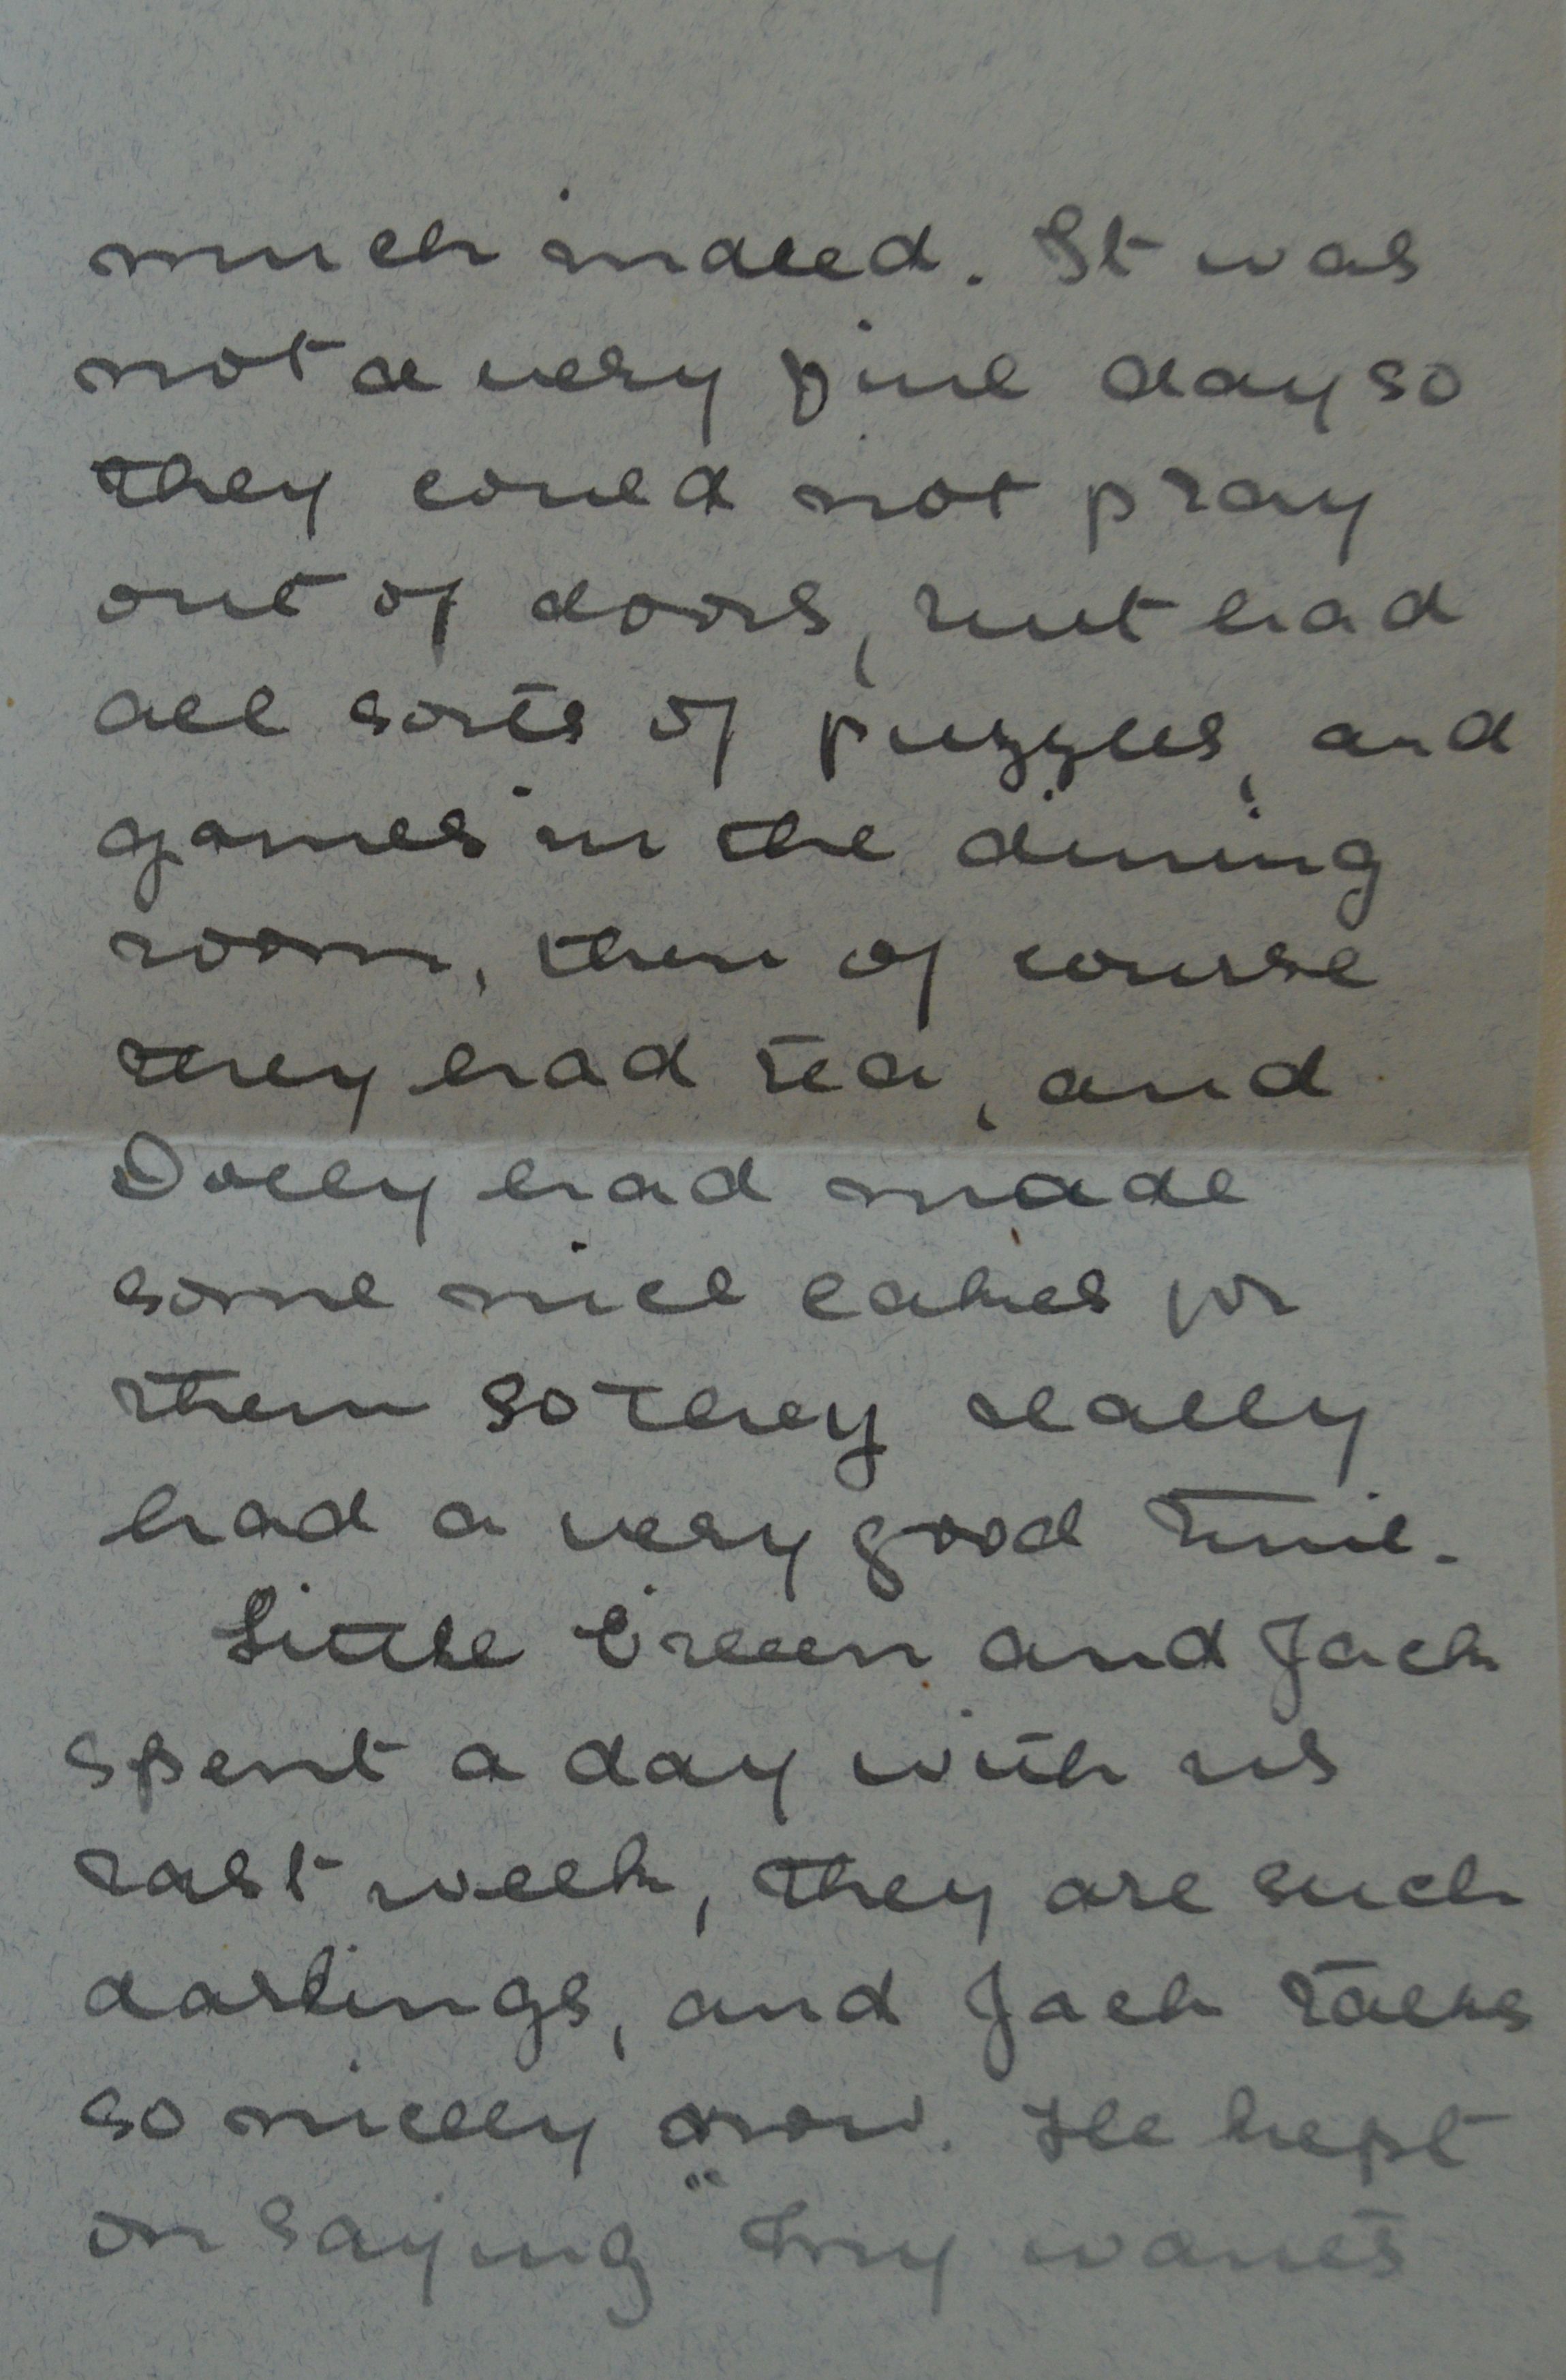 much indeed. It was
not a very fine day so
they could not play
out of doors, but had
all sorts of puzzles, and
games in the dining
room, then of course
they had tea, and
Dolly had made
some nice cakes for
them so they really
had a very good time.
Little Eileen and Jack
spent a day with us
last week, they are such
darlings, and Jack talks
so nicely now. He kept
on saying " wants